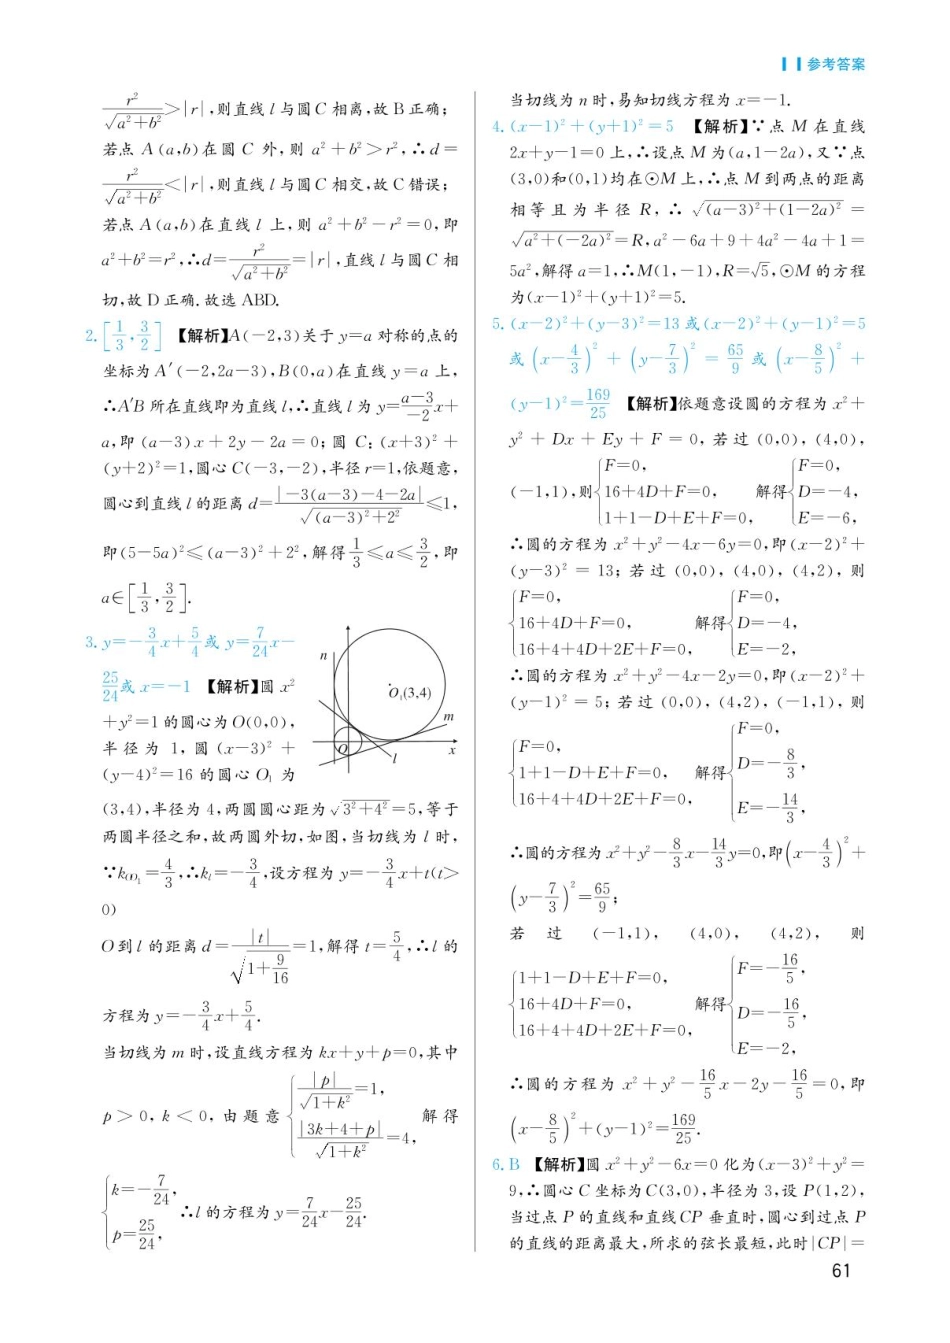 参考答案
$\frac{r^2}{\sqrt{a^2+b^2}}>|r|$,则直线 l 与圆 C 相离,故 B 正确;
若点 A(a,b)在圆 C 外,则 $a^2+b^2>r^2$,∴d=
$\frac{r^2}{\sqrt{a^2+b^2}}<|r|$,则直线 l 与圆 C 相交,故 C 错误;
若点 A(a,b)在直线 l 上,则 $a^2+b^2-r^2=0$,即
$a^2+b^2=r^2$,∴$d=\frac{r^2}{\sqrt{a^2+b^2}}=|r|$,直线 l 与圆 C 相
切,故 D 正确.故选 ABD.
2.$\left[\frac{1}{3},\frac{3}{2}\right]$ 【解析】A(-2,3)关于 y=a 对称的点的
坐标为 A′(-2,2a-3),B(0,a)在直线 y=a 上,
∴A′B 所在直线即为直线 l,∴直线 l 为 $y=\frac{a-3}{-2}x+$
a,即(a-3)x+2y-2a=0;圆 C:$(x+3)^2+$
$(y+2)^2=1$,圆心 C(-3,-2),半径 r=1,依题意,
圆心到直线 l 的距离 $d=\frac{|-3(a-3)-4-2a|}{\sqrt{(a-3)^2+2^2}}≤1$,
即$(5-5a)^2≤(a-3)^2+2^2$,解得$\frac{1}{3}≤a≤\frac{3}{2}$,即
$a∈\left[\frac{1}{3},\frac{3}{2}\right]$.
3.$y=-\frac{3}{4}x+\frac{5}{4}$或 $y=\frac{7}{24}x-$
$\frac{25}{24}$或 x=-1 【解析】圆 $x^2$
$+y^2=1$ 的圆心为 O(0,0),
半径为 1,圆 $(x-3)^2+$
$(y-4)^2=16$ 的圆心 $O_1$ 为
n
$O_1(3,4)$
m
O
l
x
(3,4),半径为 4,两圆圆心距为$\sqrt{3^2+4^2}=5$,等于
两圆半径之和,故两圆外切,如图,当切线为 l 时,
∵$k_{OO_1}=\frac{4}{3}$,∴$k_l=-\frac{3}{4}$,设方程为 $y=-\frac{3}{4}x+t(t>$
0)
O 到 l 的距离 $d=\frac{|t|}{\sqrt{1+\frac{9}{16}}}=1$,解得 $t=\frac{5}{4}$,∴l 的
方程为 $y=-\frac{3}{4}x+\frac{5}{4}$.
当切线为 m 时,设直线方程为 kx+y+p=0,其中
p>0,k<0,由题意$\begin{cases}\frac{|p|}{\sqrt{1+k^2}}=1,\\\frac{|3k+4+p|}{\sqrt{1+k^2}}=4,\end{cases}$解得
$\begin{cases}k=-\frac{7}{24},\\p=\frac{25}{24},\end{cases}$∴l 的方程为 $y=\frac{7}{24}x-\frac{25}{24}$.
当切线为 n 时,易知切线方程为 x=-1.
4.$(x-1)^2+(y+1)^2=5$ 【解析】∵点 M 在直线
2x+y-1=0 上,∴设点 M 为(a,1-2a),又∵点
(3,0)和(0,1)均在⊙M 上,∴点 M 到两点的距离
相等且为半径 R,∴$\sqrt{(a-3)^2+(1-2a)^2}=$
$\sqrt{a^2+(-2a)^2}=R$,$a^2-6a+9+4a^2-4a+1=$
$5a^2$,解得 a=1,∴M(1,-1),$R=\sqrt{5}$,⊙M 的方程
为$(x-1)^2+(y+1)^2=5$.
5.$(x-2)^2+(y-3)^2=13$ 或$(x-2)^2+(y-1)^2=5$
或$\left(x-\frac{4}{3}\right)^2+\left(y-\frac{7}{3}\right)^2=\frac{65}{9}$ 或 $\left(x-\frac{8}{5}\right)^2+$
$(y-1)^2=\frac{169}{25}$ 【解析】依题意设圆的方程为 $x^2+$
$y^2+Dx+Ey+F=0$,若过(0,0),(4,0),
(-1,1),则$\begin{cases}F=0,\\16+4D+F=0,\\1+1-D+E+F=0,\end{cases}$解得$\begin{cases}F=0,\\D=-4,\\E=-6,\end{cases}$
∴圆的方程为 $x^2+y^2-4x-6y=0$,即$(x-2)^2+$
$(y-3)^2=13$;若过(0,0),(4,0),(4,2),则
$\begin{cases}F=0,\\16+4D+F=0,\\16+4+4D+2E+F=0,\end{cases}$解得$\begin{cases}F=0,\\D=-4,\\E=-2,\end{cases}$
∴圆的方程为 $x^2+y^2-4x-2y=0$,即$(x-2)^2+$
$(y-1)^2=5$;若过(0,0),(4,2),(-1,1),则
$\begin{cases}F=0,\\1+1-D+E+F=0,\\16+4+4D+2E+F=0,\end{cases}$解得$\begin{cases}F=0,\\D=-\frac{8}{3},\\E=-\frac{14}{3},\end{cases}$
∴圆的方程为 $x^2+y^2-\frac{8}{3}x-\frac{14}{3}y=0$,即$\left(x-\frac{4}{3}\right)^2+$
$\left(y-\frac{7}{3}\right)^2=\frac{65}{9}$;
若过(-1,1),(4,0),(4,2),则
$\begin{cases}1+1-D+E+F=0,\\16+4D+F=0,\\16+4+4D+2E+F=0,\end{cases}$解得$\begin{cases}F=-\frac{16}{5},\\D=-\frac{16}{5},\\E=-2,\end{cases}$
∴圆的方程为 $x^2+y^2-\frac{16}{5}x-2y-\frac{16}{5}=0$,即
$\left(x-\frac{8}{5}\right)^2+(y-1)^2=\frac{169}{25}$.
6.B 【解析】圆 $x^2+y^2-6x=0$ 化为$(x-3)^2+y^2=$
9,∴圆心 C 坐标为 C(3,0),半径为 3,设 P(1,2),
当过点 P 的直线和直线 CP 垂直时,圆心到过点 P
的直线的距离最大,所求的弦长最短,此时|CP|=
61